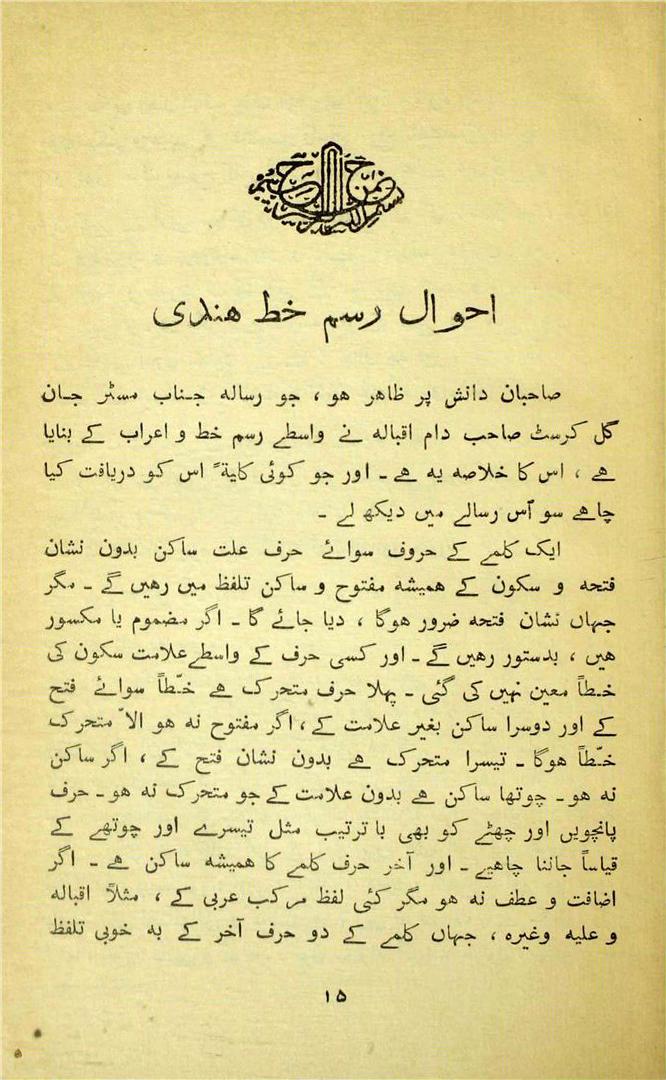 احوال رسم خط هندی
صاحبان دانش پر ظاهر هو ، جو رساله جناب مسٹر جان
گل کرسٹ صاحب دام اقباله نے واسطے رسم خط و اعراب کے بنایا
هے ، اس کا خلاصه یه هے - اور جو کوئی کلیةً اس کو دریافت کیا
چاهے سو اُس رسالے میں دیکھ لے -
ایک کلمے کے حروف سوائے حرف علت ساکن بدون نشان
فتحه و سکون کے همیشه مفتوح و ساکن تلفظ میں رهیں گے - مگر
جہاں نشان فتحه ضرور هوگا ، دیا جائے گا - اگر مضموم یا مکسور
هیں ، بدستور رهیں گے - اور کسی حرف کے واسطے علامت سکون کی
خطاً معین نہیں کی گئی - پہلا حرف متحرک هے خطّاً سوائے فتح
کے اور دوسرا ساکن بغیر علامت کے ، اگر مفتوح نه هو الاّ متحرک
خطّاً هوگا - تیسرا متحرک هے بدون نشان فتح کے ، اگر ساکن
نه هو - چوتھا ساکن هے بدون علامت کے جو متحرک نه هو - حرف
پانچویں اور چھٹے کو بھی با ترتیب مثل تیسرے اور چوتھے کے
قیاساً جاننا چاهیے - اور آخر حرف کلمے کا همیشه ساکن هے - اگر
اضافت و عطف نه هو مگر کئی لفظ مرکب عربی کے ، مثلاً اقباله
و علیه وغیره ، جہاں کلمے کے دو حرف آخر کے به خوبی تلفظ
۱۵